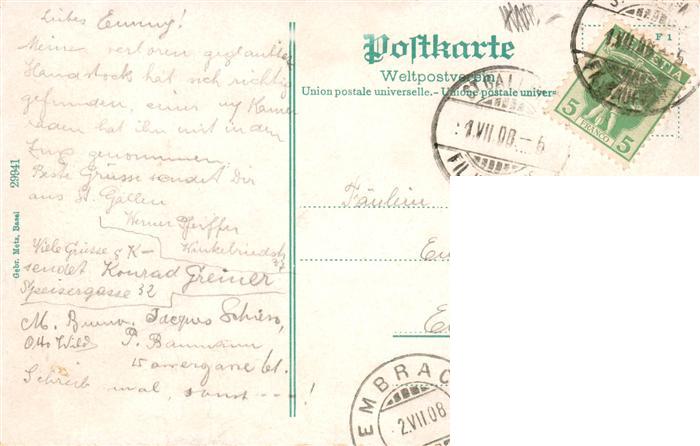 Liebes Emmy!
Meinen verloren geglaubten
Handstock hat sich richtig
gefunden, einer my Kame
raden hat ihn mit in den
Zug genommen.
Beste Grüsse sendet Dir
aus St. Gallen
Werner Pfeiffer
Winkelriedstr
37
Viele Grüsse & K—
sendet Konrad Greiner
Speisergasse 32
M. Bruno. Jacques Schiess,
Otto Wild P. Baumann
Schreib mal, sonst ---!
Gebr. Metz, Basel 29941
Postkarte
Weltpostverein
Union postale universelle. - Unione postale univers
F 1
HELVETIA
5 FRANCO 5
1.VII.08.-6
Fäulein
EMBRAC
2.VII.08